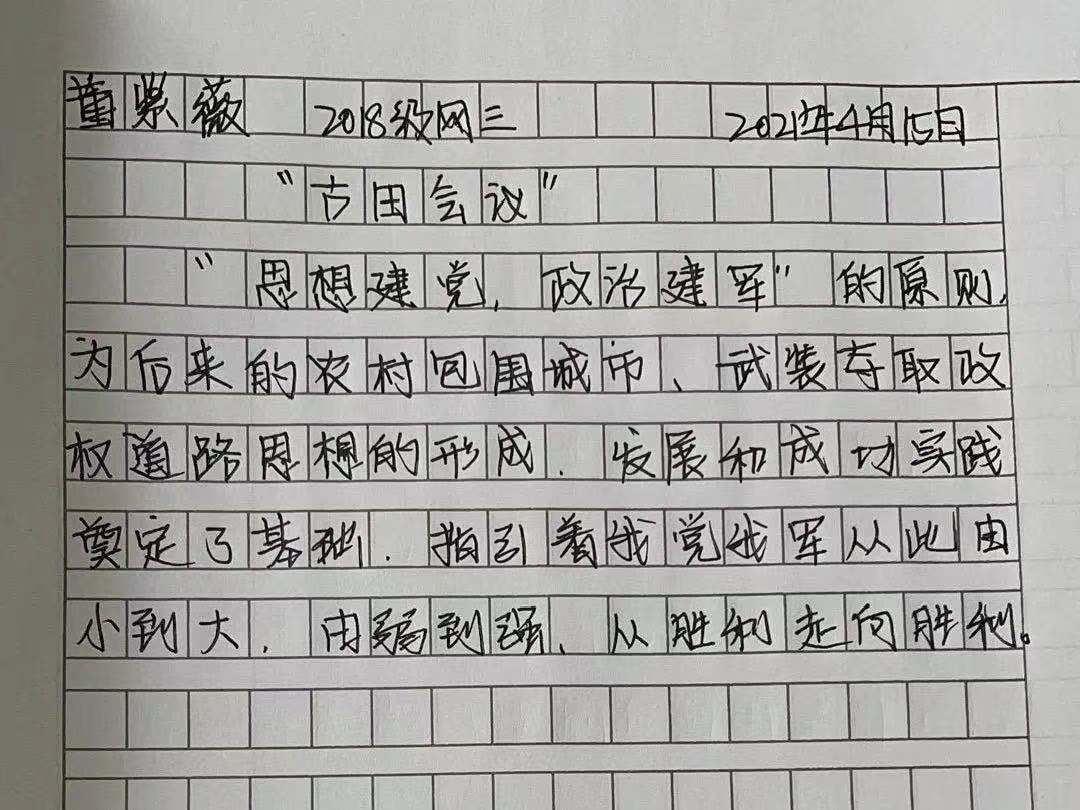 董紫薇 2018级网三 2021年4月15日
“古田会议”
“思想建党,政治建军”的原则,
为后来的农村包围城市、武装夺取政
权道路思想的形成、发展和成功实践
奠定了基础,指引着我党我军从此由
小到大,由弱到强、从胜利走向胜利。